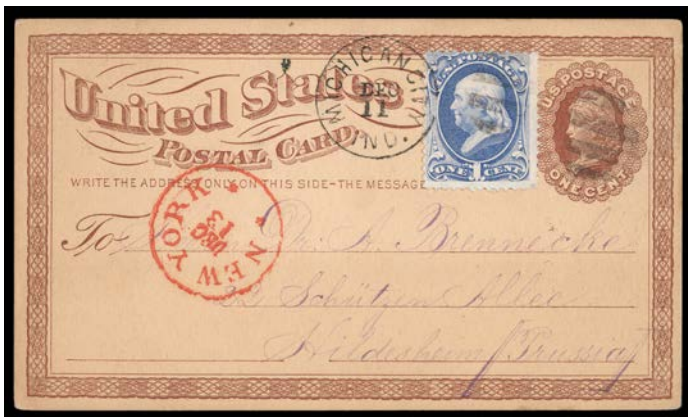 United States
POSTAL CARD.
WRITE THE ADDRESS ONLY ON THIS SIDE-THE MESSAGE
MICHIGAN CITY
DEC
11
IND.
U.S. POSTAGE
ONE 1 CENT
U.S. POSTAGE
ONE CENT
NEW YORK
DEC
13
To Dr. A. Brennecke
Schützen Allee
Hildesheim (Prussia)